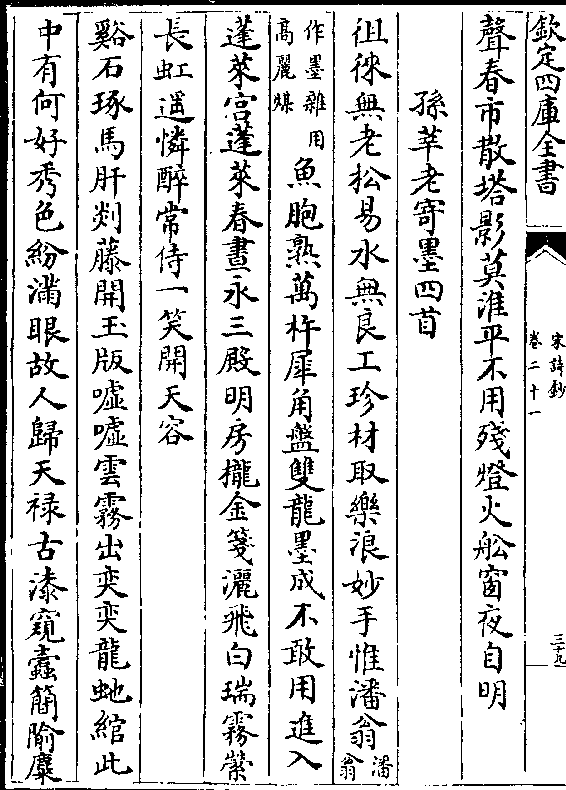 欽定四庫全書
宋詩鈔
卷二十一
三十九
聲春市散塔影莫淮平不用殘燈火舩窗夜自明
孫莘老寄墨四首
徂徠無老松易水無良工珍材取樂浪妙手惟潘翁潘翁
作墨雜用高麗煤魚胞熟萬杵犀角盤雙龍墨成不敢用進入
蓬萊宫蓬萊春晝永三殿明房櫳金箋灑飛白瑞霧縈
長虹遥憐醉常侍一笑開天容
谿石琢馬肝剡藤開玉版嘘嘘雲霧出奕奕龍虵綰此
中有何好秀色紛滿眼故人歸天禄古漆窺蠹簡隃麋